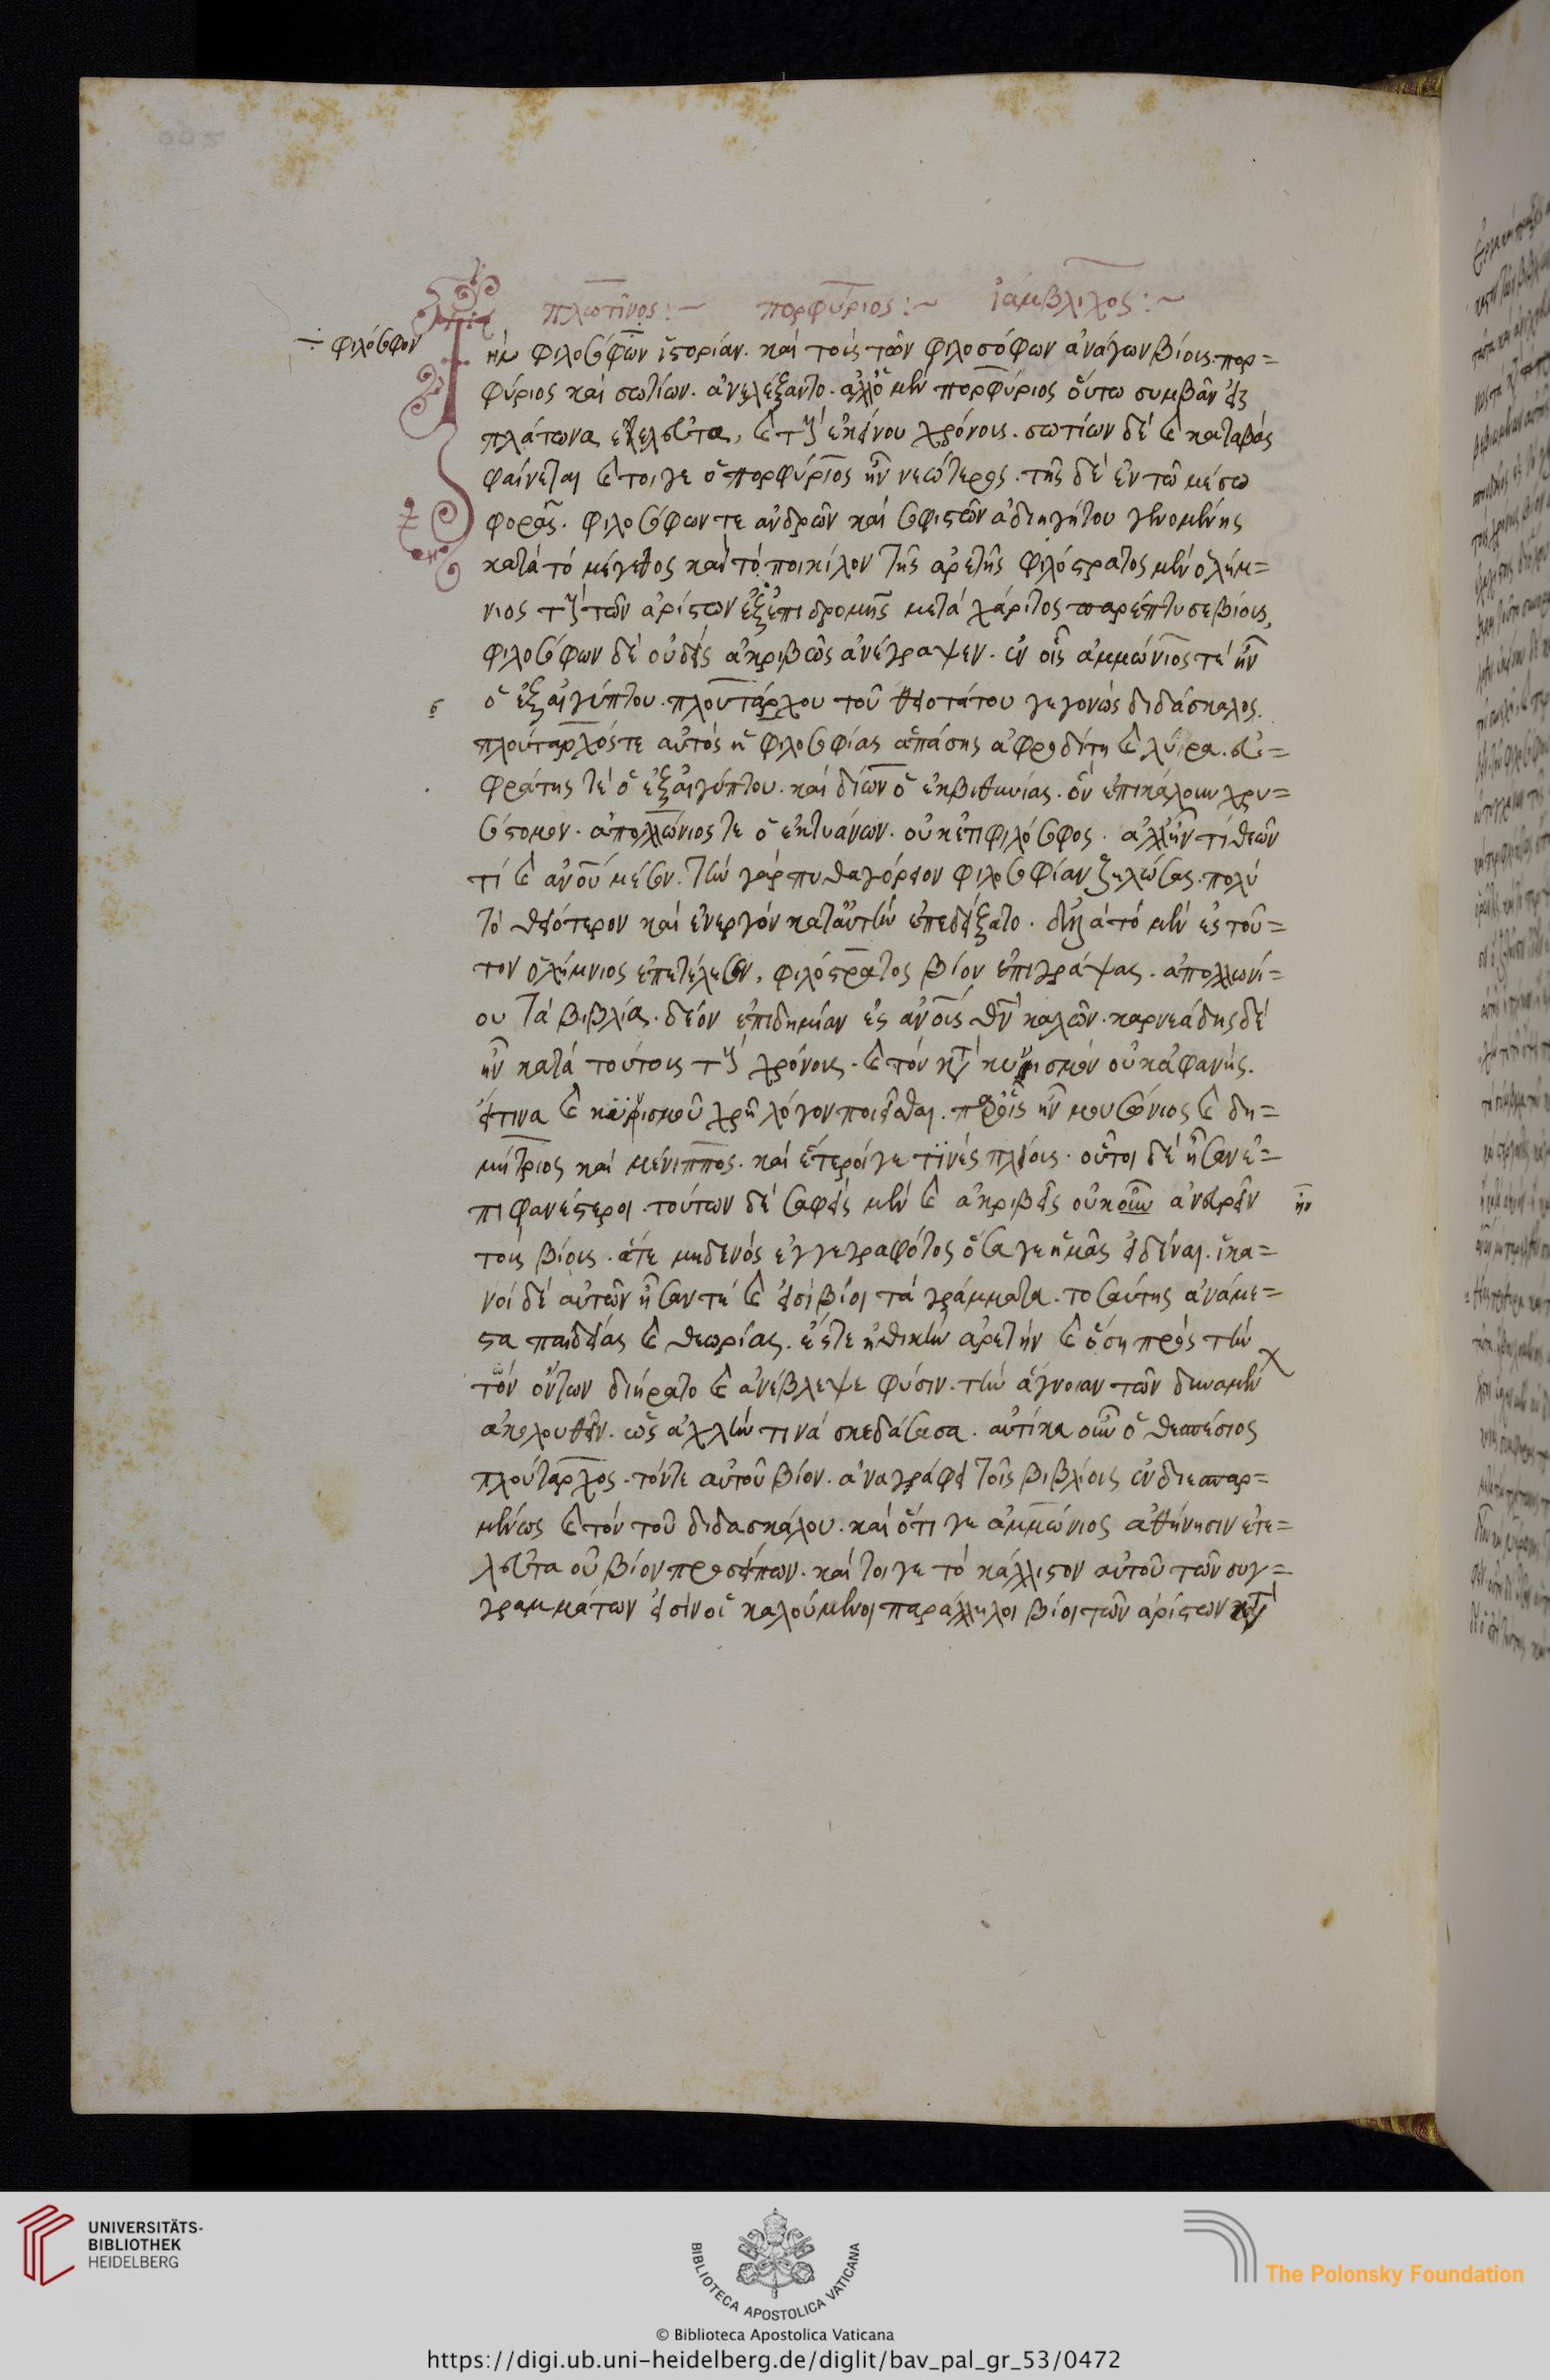 πλωτῖνος :~ πορφύριος :~ ἰάμβλιχος :~
φιλόσοφον
Τὴν φιλοσόφων ἱστορίαν. καὶ τοὺς τῶν φιλοσόφων ἀνάγων βίους. πορ=
φύριος καὶ σωτίων. ἀνελέξαντο. ἀλλ' ὁ μὲν πορφύριος οὕτω συμβὰν εἰς
πλάτωνα ἐτελεύτα, καὶ τοὺς ἐκείνου χρόνους. σωτίων δὲ καὶ καταβὰς
φαίνεται καίτοιγε ὁ πορφύριος ἦν νεώτερος. τῆς δὲ ἐν τῶ μέσω
φορᾶς. φιλοσόφων τε ἀνδρῶν καὶ σοφιστῶν ἀδιηγήτου γενομένης
κατὰ τὸ μέγεθος καὶ τὸ ποικίλον τῆς ἀρετῆς φιλόστρατος μὲν ὁ λήμ=
νιος τοὺς τῶν ἀρίστων ἐξ ἐπιδρομῆς μετὰ χάριτος παρέπτυσε βίους,
φιλοσόφων δὲ οὐδεὶς ἀκριβῶς ἀνέγραψεν. ἐν οἷς ἀμμώνιος τὲ ἦν
ὁ ἐξ αἰγύπτου. πλουτάρχου τοῦ θειοτάτου γεγονὼς διδάσκαλος.
πλούταρχός τε αὐτὸς ἡ φιλοσοφίας ἁπάσης ἀφροδίτη καὶ λύρα. εὐ=
φράτης τὲ ὁ ἐξ αἰγύπτου. καὶ δίων ὁ ἐκ βιθυνίας. ὃν ἐπικάλουν χρυ=
σόστομον. ἀπολλώνιος τε ὁ ἐκ τυάνων. οὐκ ἔτι φιλόσοφος. ἀλλ' ἦν τὶ θεῶν
τὶ καὶ ἀνου μέσον. τὴν γὰρ πυθαγόρειον φιλοσοφίαν ζηλώσας. πολὺ
τὸ θειότερον καὶ ἐνεργὸν κατ' αὐτὴν ἐπεδείξατο. ἀλλὰ τὸ μὲν ἐς τοῦ=
τον ὁ λήμνιος ἐπετέλεσεν, φιλόστρατος βίον ἐπιγράψας. ἀπολλωνί=
ου τὰ βιβλία. δέον ἐπιδημίαν ἐς ἀνοις θυ καλῶν. καρνεάδης δὲ
ἦν κατὰ τούτους τοὺς χρόνους. καὶ τὸν κατὰ κυνισμὸν οὐκ ἀφανής.
εἴτινα καὶ κυνισμοῦ χρῆ λόγον ποιεῖσθαι. παρ' οἷς ἦν μουσώνιος καὶ δη=
μήτριος καὶ μένιππος. καὶ ἕτεροίγε τινὲς πλείους. οὗτοι δὲ ἦσαν ἐ=
πιφανέστεροι. τούτων δὲ σαφεῖς μὲν καὶ ἀκριβεῖς οὐκ οὖν ἀνευρεῖν ἦν
τοὺς βίους. ἅτε μηδενὸς συγγεγραφότος ὅσα γε ἡμᾶς εἰδέναι. ἱκα=
νοὶ δὲ αὐτῶν ἦσαν τὲ καὶ εἰσὶ βίοι τὰ γράμματα. τοσαύτης ἀνάμε=
στα παιδείας καὶ θεωρίας. ἔς τε ἠθικὴν ἀρετὴν καὶ ὅση πρὸς τὴν
τῶν ὄντων διήρατο καὶ ἀνέβλεψε φύσιν. τὴν ἄγνοιαν τῶν δυναμένων
ἀκολουθεῖν. ὡς ἀχλὺν τινὰ σκεδάσασα. αὐτίκα οὖν ὁ θεσπέσιος
πλούταρχος. τόν τε αὐτοῦ βίον. ἀναγράφει τοῖς βιβλίοις ἐνδιεσπαρ=
μένως καὶ τὸν τοῦ διδασκάλου. καὶ ὅτι γε ἀμμώνιος ἀθήνησιν ἐτε=
λεύτα οὐ βίον προσειπών. καίτοιγε τὸ κάλλιστον αὐτοῦ τῶν συγ=
γραμμάτων εἰσὶν οἱ καλούμενοι παράλληλοι βίοι τῶν ἀρίστων κατὰ
UNIVERSITÄTS-
BIBLIOTHEK
HEIDELBERG
BIBLIOTECA APOSTOLICA VATICANA
The Polonsky Foundation
© Biblioteca Apostolica Vaticana
https://digi.ub.uni-heidelberg.de/diglit/bav_pal_gr_53/0472